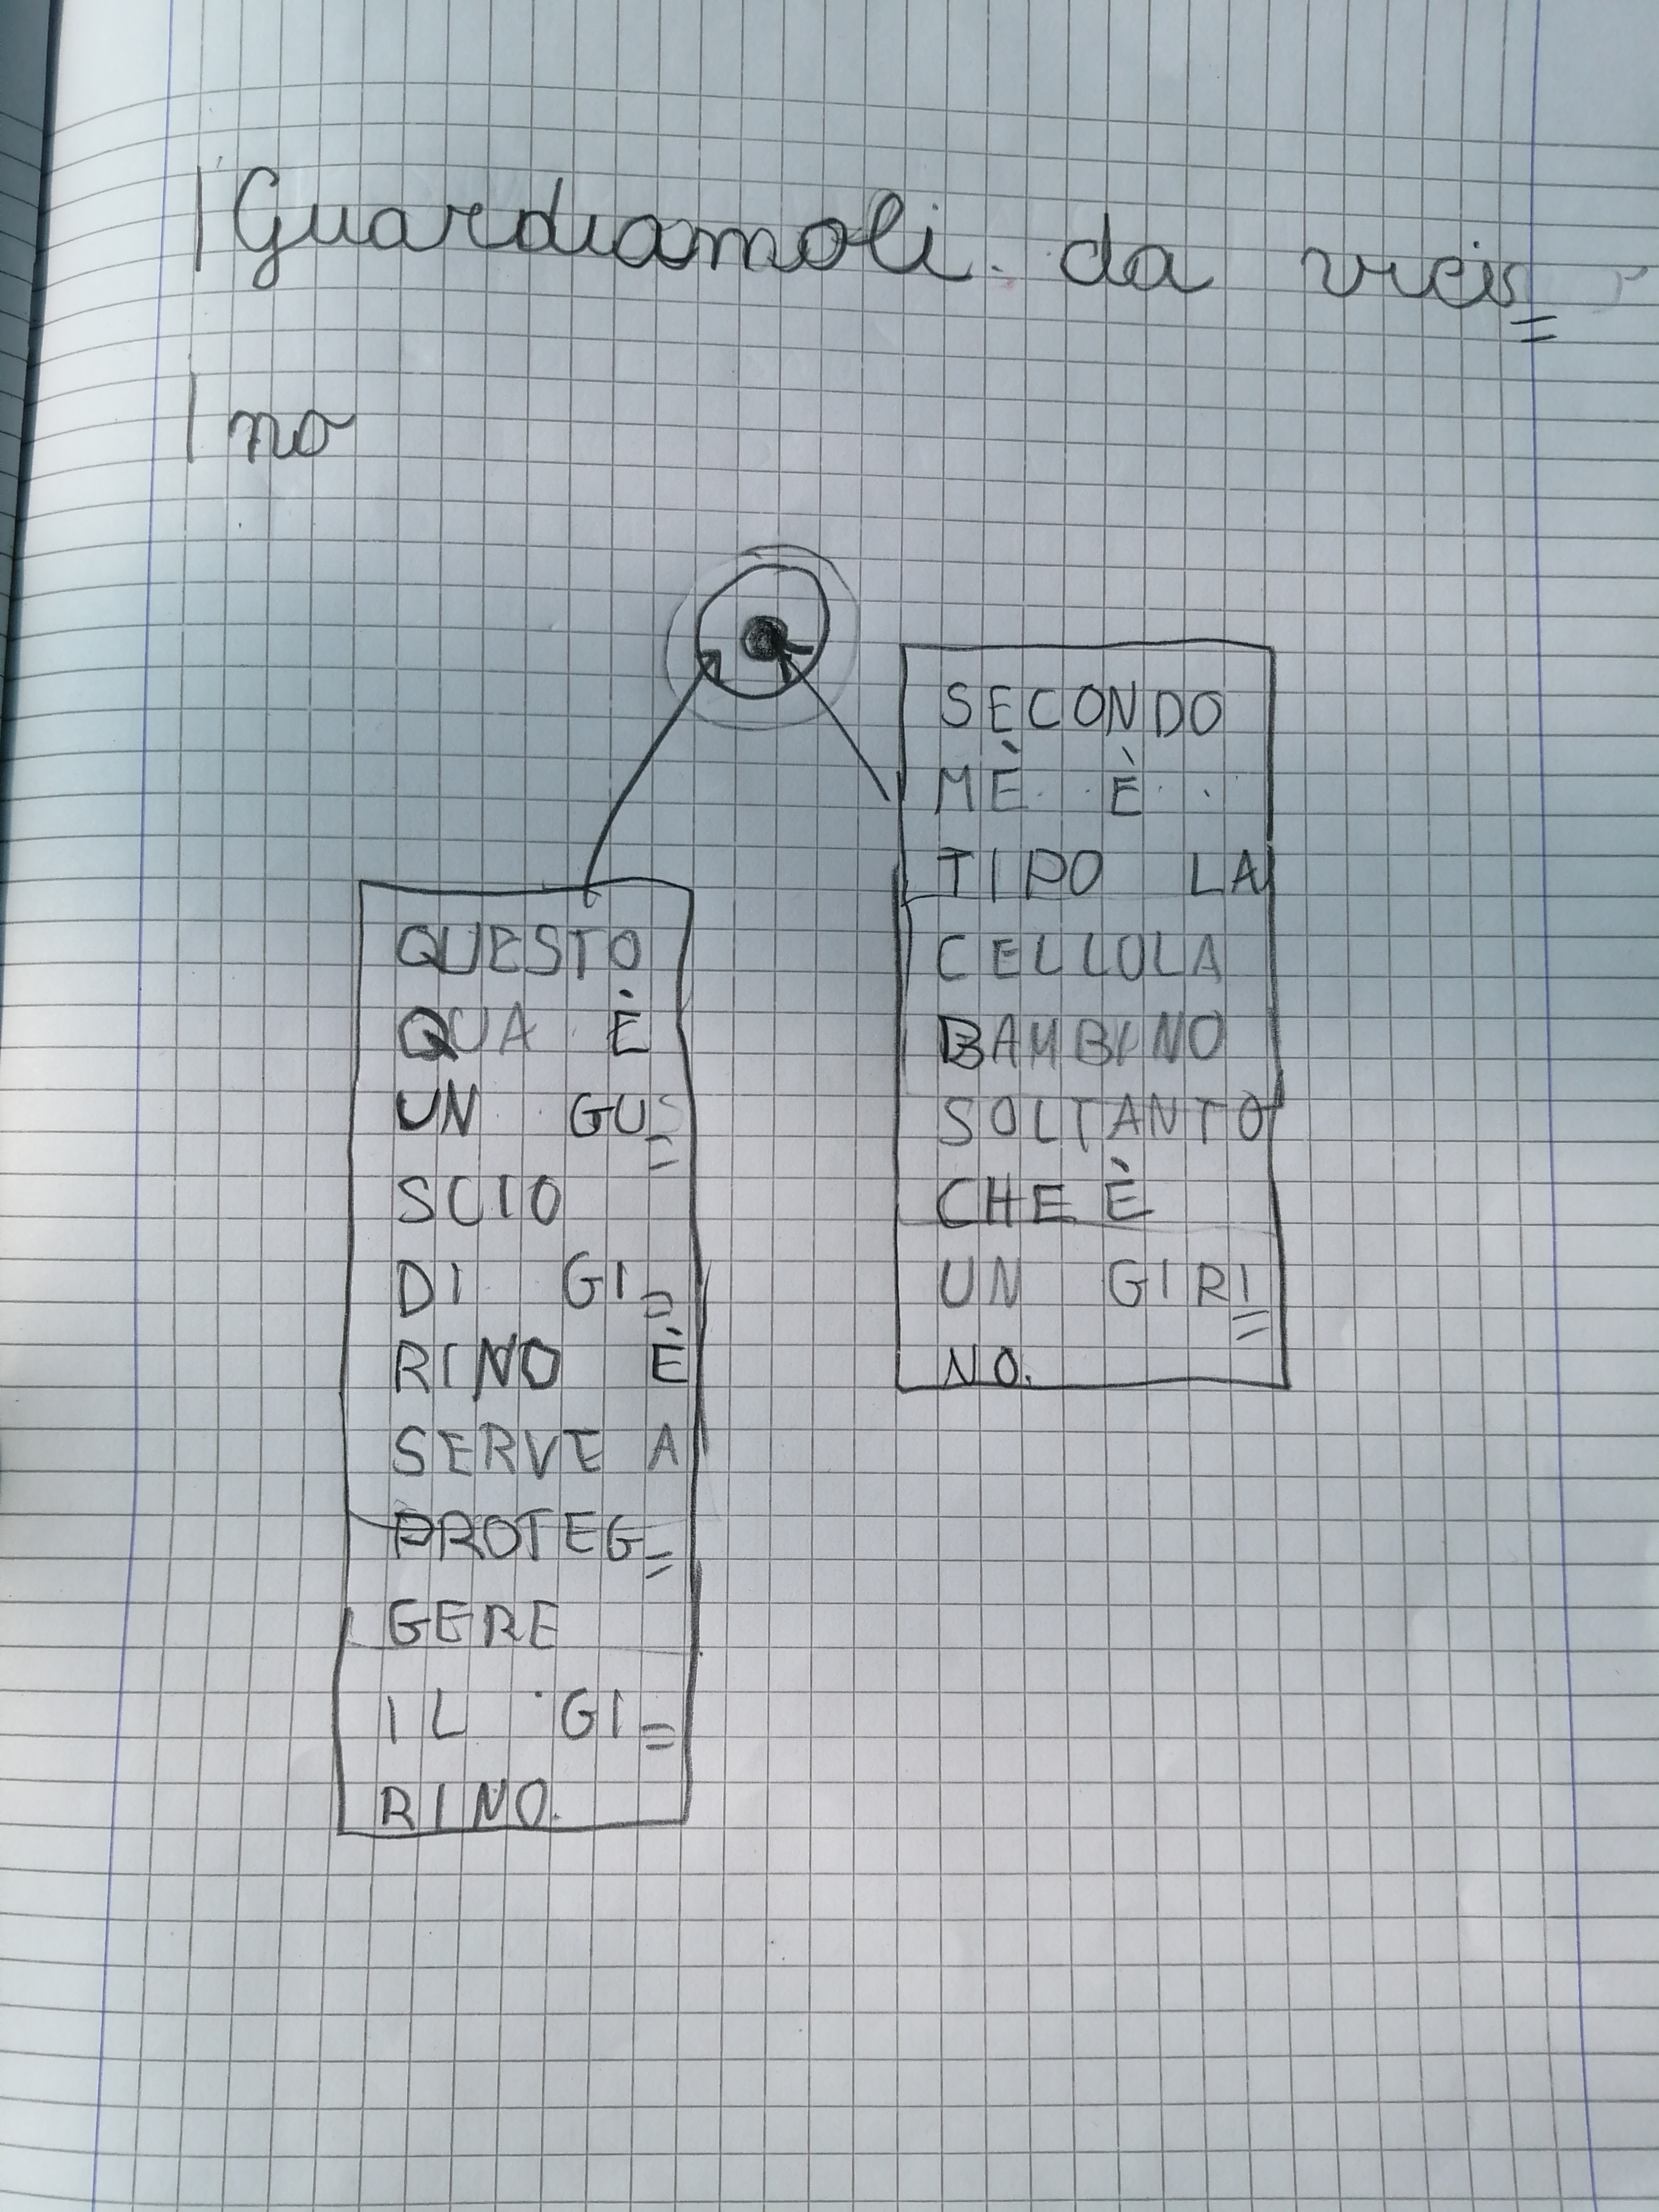 Guardiamoli da vici=
no
QUESTO
QUA È
UN GU=
SCIO
DI GI=
RINO È
SERVE A
PROTEG=
GERE
IL GI=
RINO.
SECONDO
MÈ È
TIPO LA
CELLULA
BAMBINO
SOLTANTO
CHE È
UN GIRI=
NO.